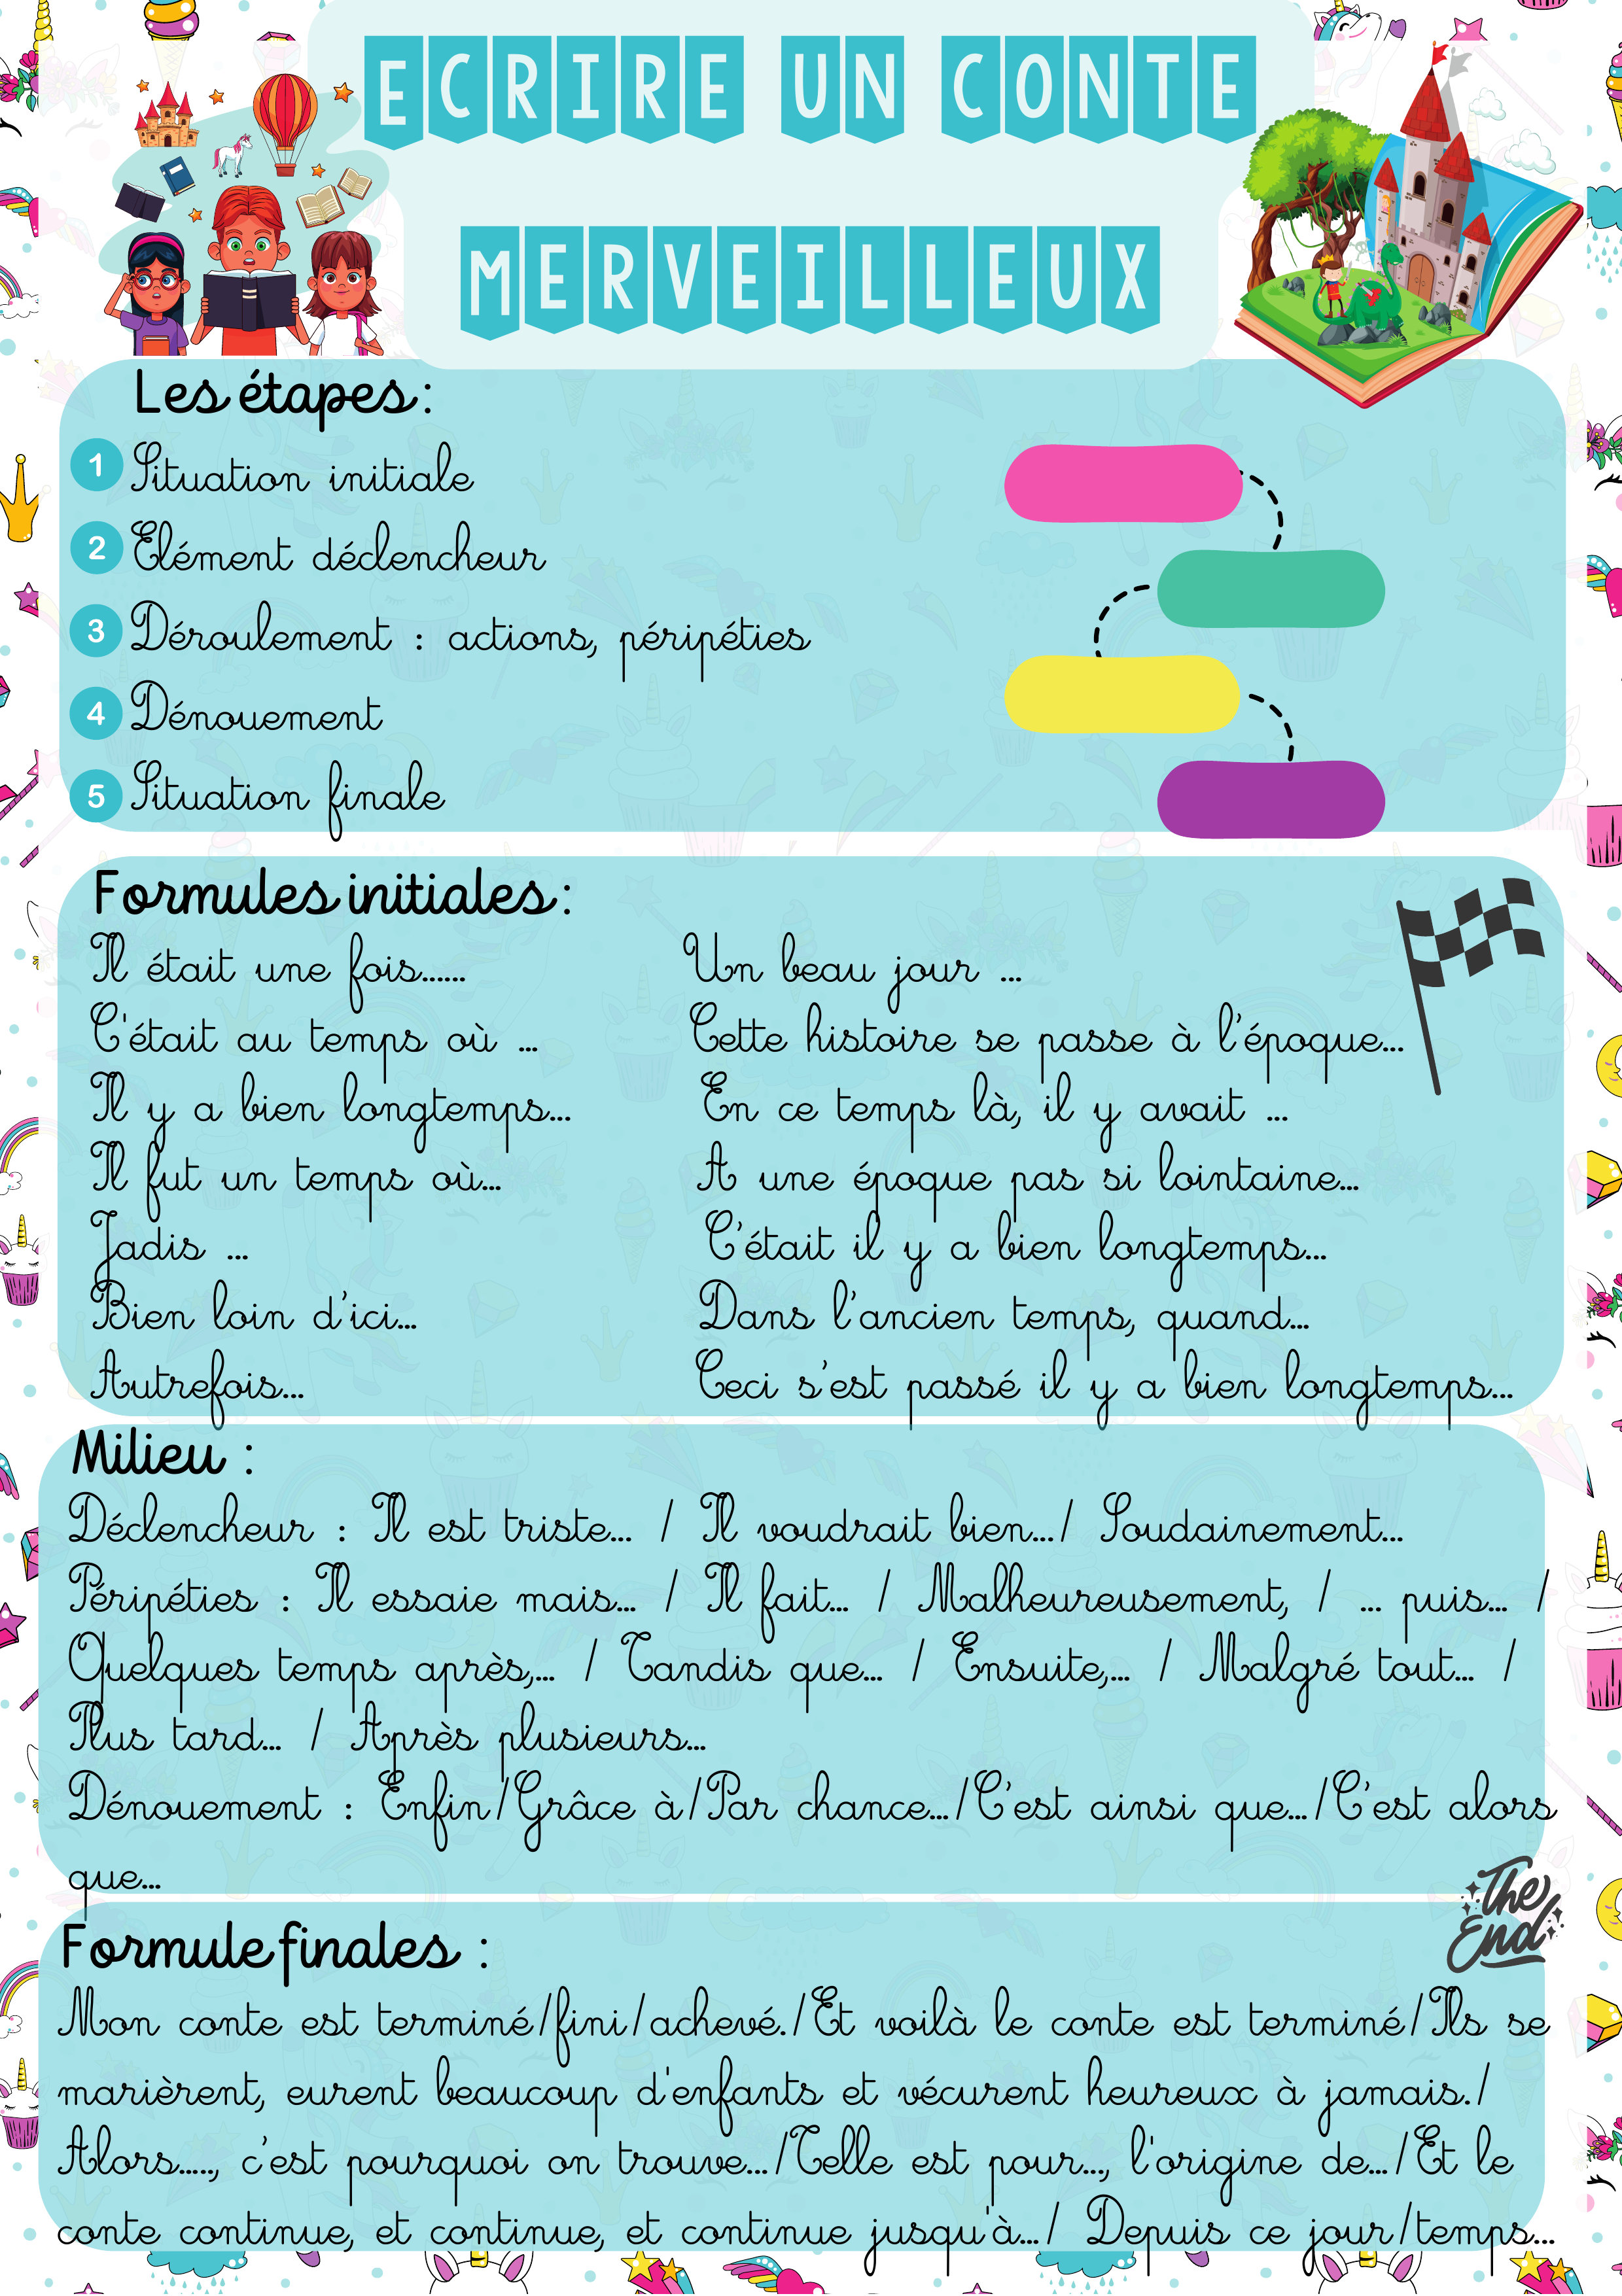 ECRIRE UN CONTE
MERVEILLEUX
Les étapes :
1 Situation initiale
2 Elément déclencheur
3 Déroulement : actions, péripéties
4 Dénouement
5 Situation finale
Formules initiales :
Il était une fois......
C'était au temps où ...
Il y a bien longtemps...
Il fut un temps où...
Jadis ...
Bien loin d'ici...
Autrefois...
Un beau jour ...
Cette histoire se passe à l'époque...
En ce temps là, il y avait ...
A une époque pas si lointaine...
C'était il y a bien longtemps...
Dans l'ancien temps, quand...
Ceci s'est passé il y a bien longtemps...
Milieu :
Déclencheur : Il est triste... / Il voudrait bien.../ Soudainement...
Péripéties : Il essaie mais... / Il fait... / Malheureusement, / ... puis... /
Quelques temps après,... / Tandis que... / Ensuite,... / Malgré tout... /
Plus tard... / Après plusieurs...
Dénouement : Enfin/Grâce à/Par chance.../C'est ainsi que.../C'est alors
que...
The
End
Formule finales :
Mon conte est terminé/fini/achevé./Et voilà le conte est terminé/Ils se
marièrent, eurent beaucoup d'enfants et vécurent heureux à jamais./
Alors....., c'est pourquoi on trouve.../Telle est pour..., l'origine de.../Et le
conte continue, et continue, et continue jusqu'à.../ Depuis ce jour/temps...